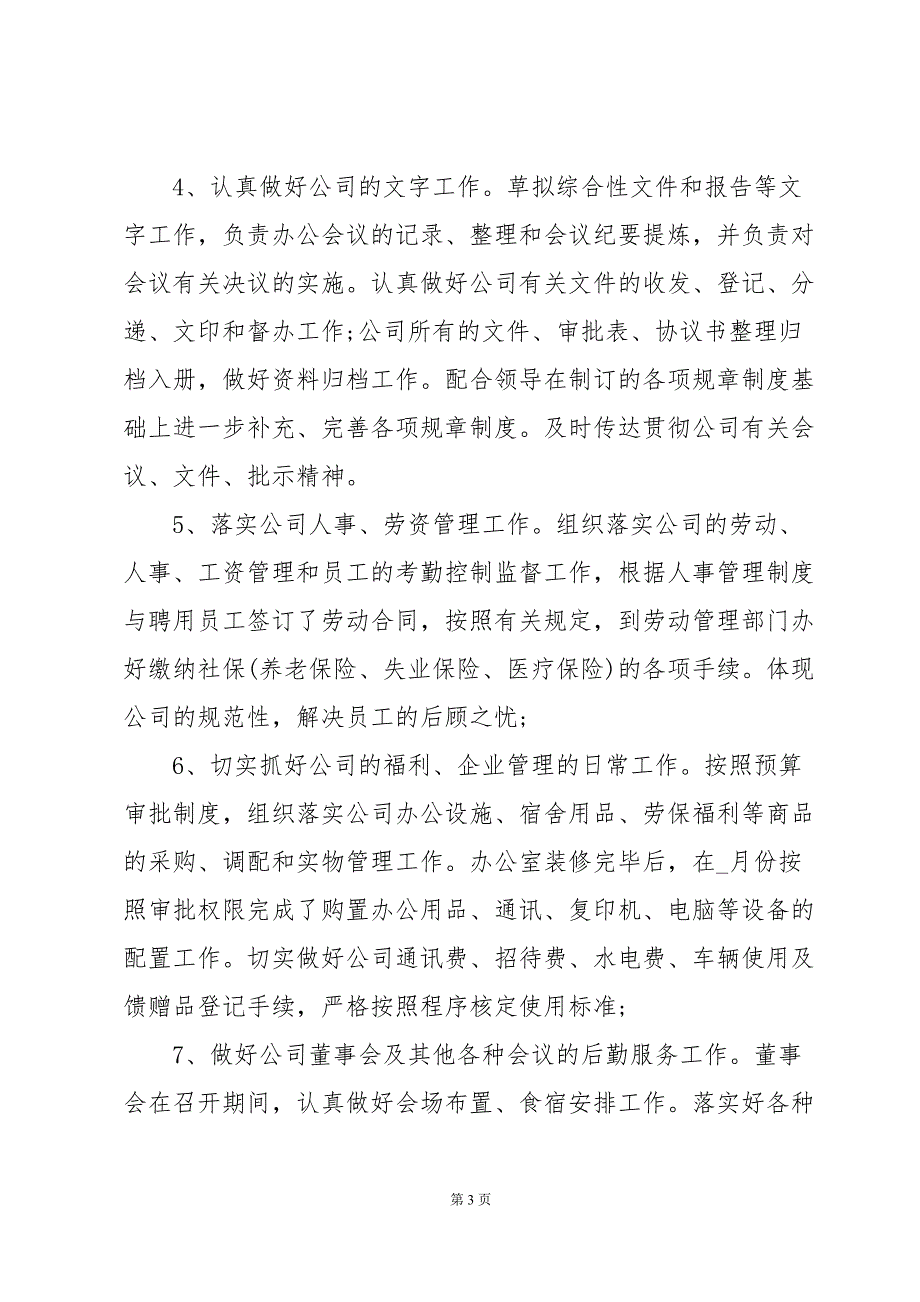 4、认真做好公司的文字工作。草拟综合性文件和报告等文
字工作，负责办公会议的记录、整理和会议纪要提炼，并负责对
会议有关决议的实施。认真做好公司有关文件的收发、登记、分
递、文印和督办工作;公司所有的文件、审批表、协议书整理归
档入册，做好资料归档工作。配合领导在制订的各项规章制度基
础上进一步补充、完善各项规章制度。及时传达贯彻公司有关会
议、文件、批示精神。
5、落实公司人事、劳资管理工作。组织落实公司的劳动、
人事、工资管理和员工的考勤控制监督工作，根据人事管理制度
与聘用员工签订了劳动合同，按照有关规定，到劳动管理部门办
好缴纳社保(养老保险、失业保险、医疗保险)的各项手续。体现
公司的规范性，解决员工的后顾之忧;
6、切实抓好公司的福利、企业管理的日常工作。按照预算
审批制度，组织落实公司办公设施、宿舍用品、劳保福利等商品
的采购、调配和实物管理工作。办公室装修完毕后，在_月份按
照审批权限完成了购置办公用品、通讯、复印机、电脑等设备的
配置工作。切实做好公司通讯费、招待费、水电费、车辆使用及
馈赠品登记手续，严格按照程序核定使用标准;
7、做好公司董事会及其他各种会议的后勤服务工作。董事
会在召开期间，认真做好会场布置、食宿安排工作。落实好各种
第 3 页